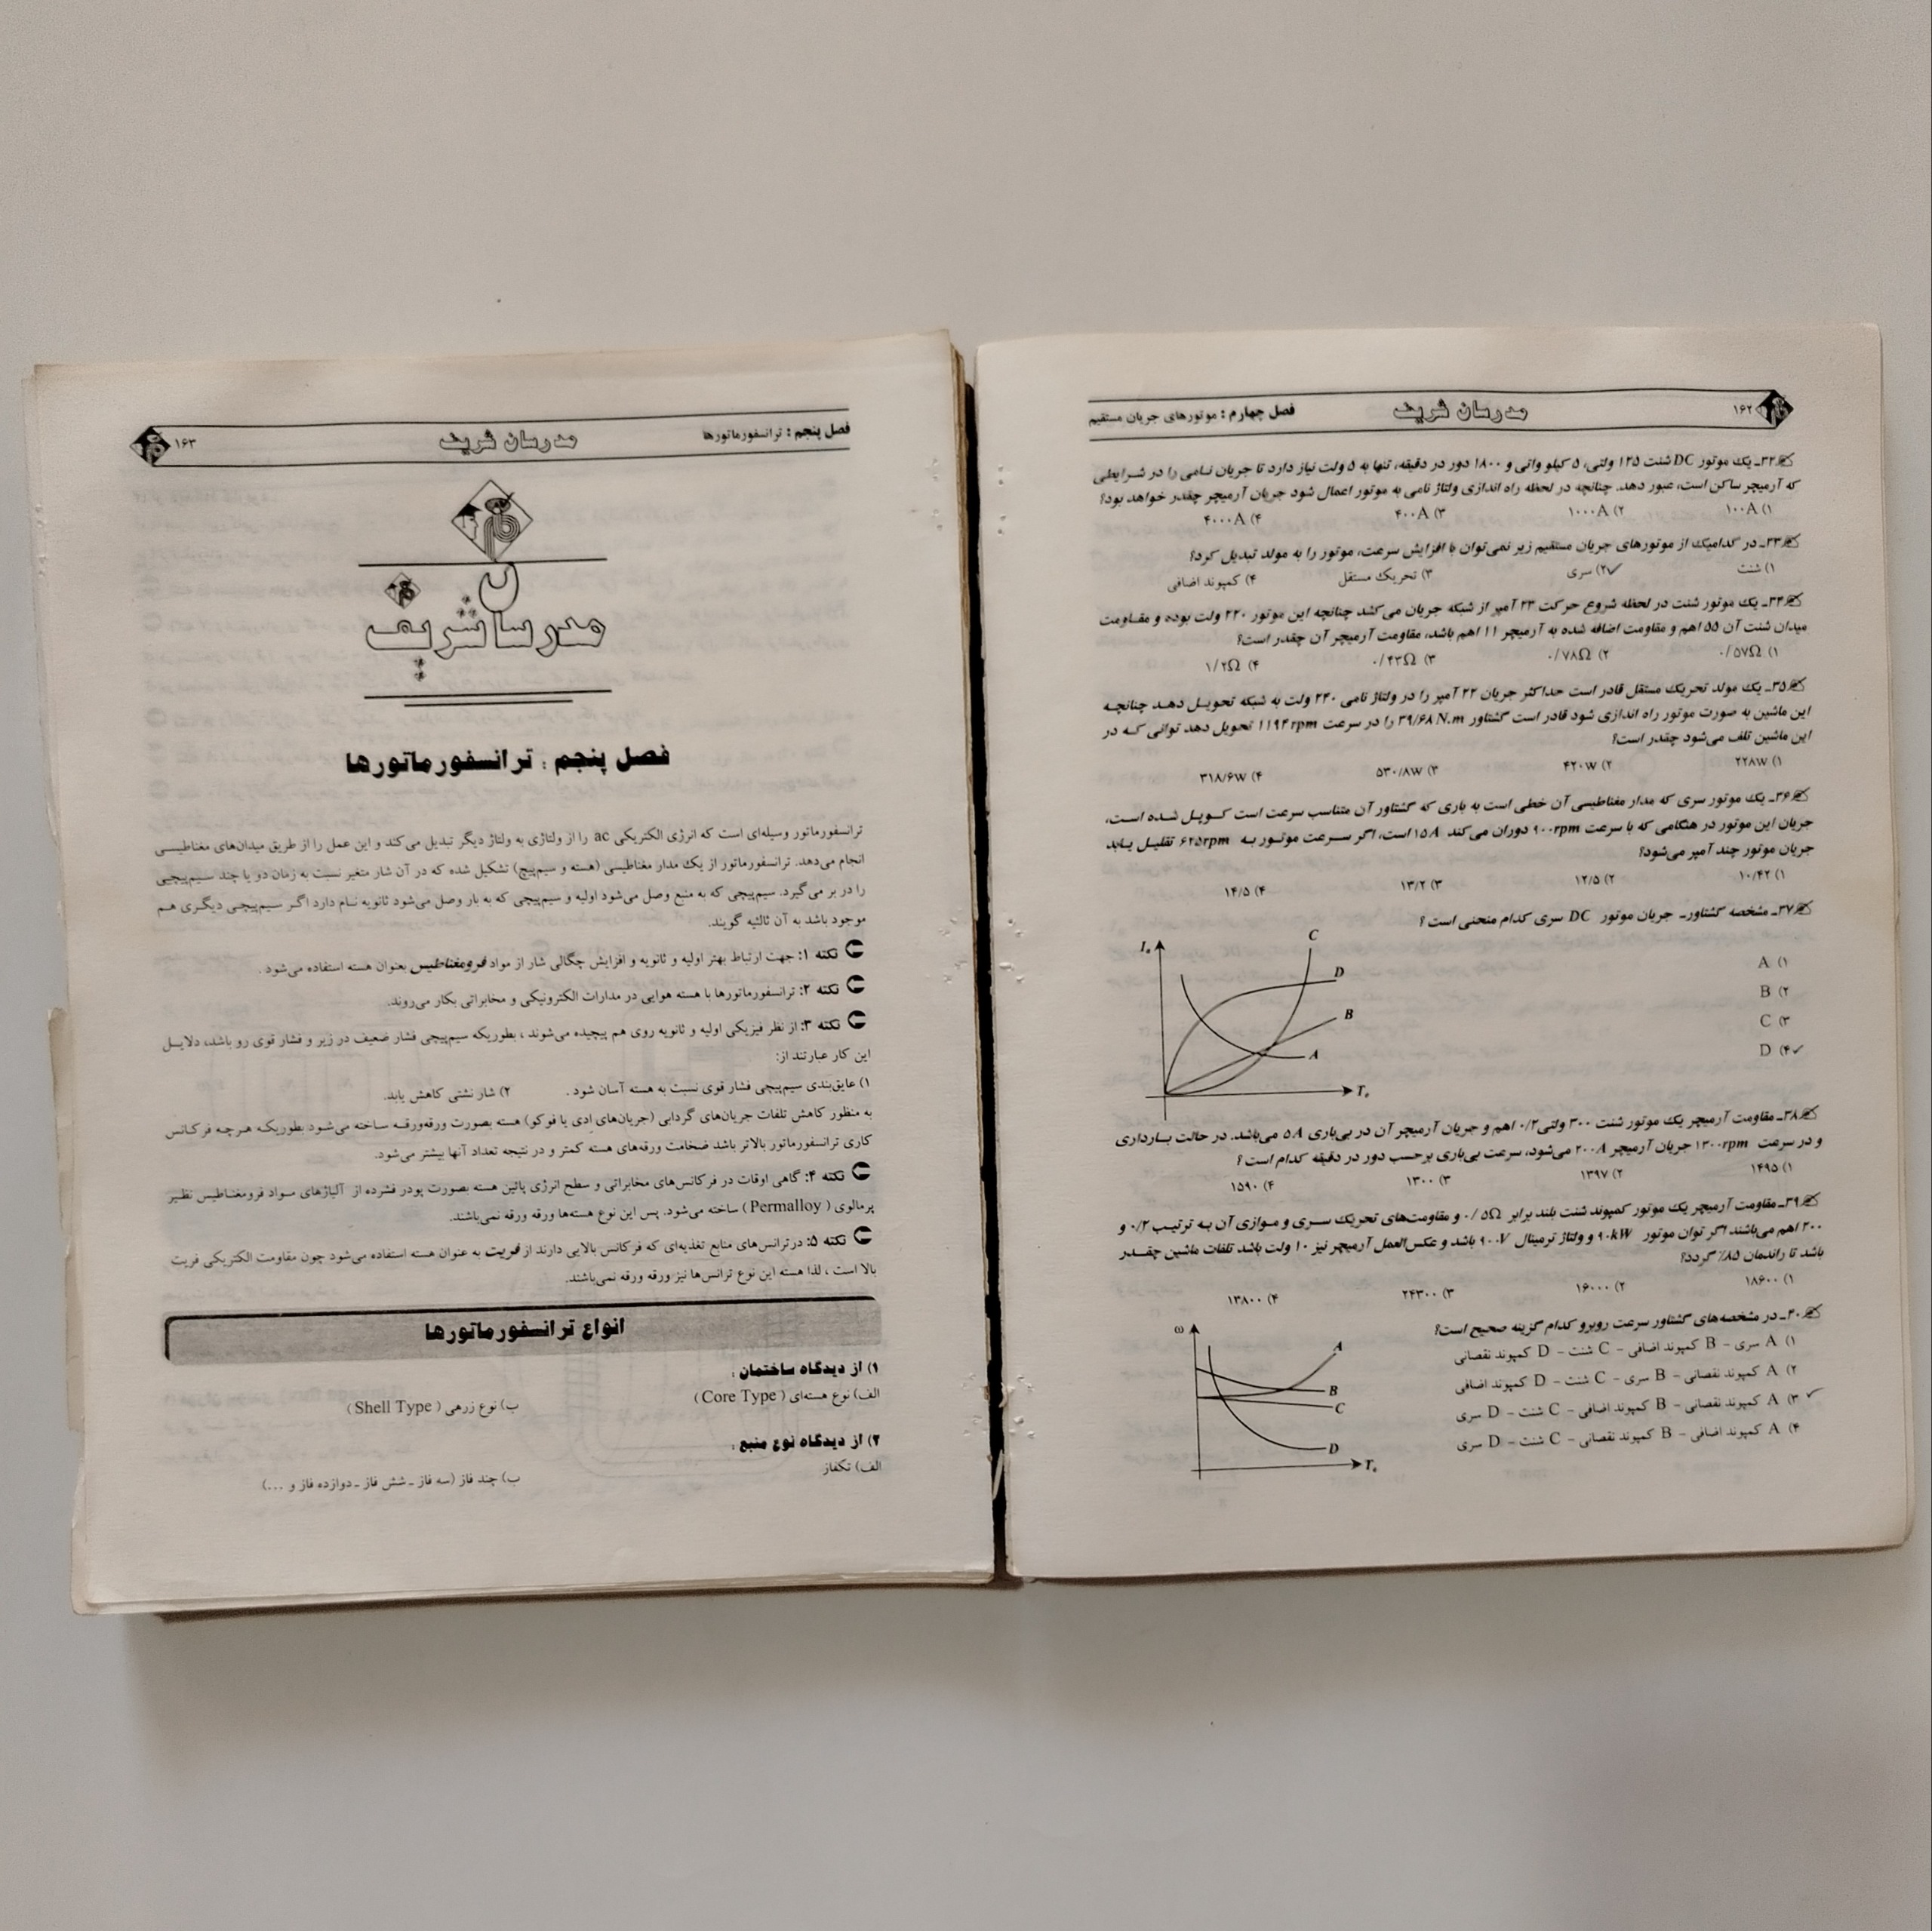 ۱۶۲ مدرسان شریف فصل چهارم : موتورهای جریان مستقیم
۳۲ـ یک موتور DC شنت ۱۲۵ ولتی، ۵ کیلو واتی و ۱۸۰۰ دور در دقیقه، تنها به ۵ ولت نیاز دارد تا جریان نـامی را در شـرایطی
که آرمیچر ساکن است، عبور دهد. چنانچه در لحظه راه اندازی ولتاژ نامی به موتور اعمال شود جریان آرمیچر چقدر خواهد بود؟
۱) ۱۰۰A ۲) ۱۰۰۰A ۳) ۴۰۰A ۴) ۴۰۰۰A
۳۳ـ در کدامیک از موتورهای جریان مستقیم زیر نمی‌توان با افزایش سرعت، موتور را به مولد تبدیل کرد؟
۱) شنت ۲) سری ۳) تحریک مستقل ۴) کمپوند اضافی
۳۴ـ یک موتور شنت در لحظه شروع حرکت ۲۳ آمپر از شبکه جریان می‌کشد چنانچه این موتور ۲۲۰ ولت بوده و مقـاومت
میدان شنت آن ۵۵ اهم و مقاومت اضافه شده به آرمیچر ۱۱ اهم باشد، مقاومت آرمیچر آن چقدر است؟
۱) ۰/۵۷Ω ۲) ۰/۷۸Ω ۳) ۰/۴۳Ω ۴) ۱/۲Ω
۳۵ـ یک مولد تحریک مستقل قادر است حداکثر جریان ۲۲ آمپر را در ولتاژ نامی ۲۴۰ ولت به شبکه تحویـل دهـد چنانچـه
این ماشین به صورت موتور راه اندازی شود قادر است گشتاور ۳۹/۶۸ N.m را در سرعت ۱۱۹۴ rpm تحویل دهد توانی کـه در
این ماشین تلف می‌شود چقدر است؟
۱) ۲۲۸W ۲) ۴۲۰W ۳) ۵۳۰/۸W ۴) ۳۱۸/۶W
۳۶ـ یک موتور سری که مدار مغناطیسی آن خطی است به باری که گشتاور آن متناسب سرعت است کـوپـل شـده اسـت،
جریان این موتور در هنگامی که با سرعت ۹۰۰rpm دوران می‌کند ۱۵A است، اگر سـرعت موتـور بـه ۶۲۵rpm تقلیـل یـابد
جریان موتور چند آمپر می‌شود؟
۱) ۱۰/۴۲ ۲) ۱۲/۵ ۳) ۱۳/۲ ۴) ۱۴/۵
۳۷ـ مشخصه گشتاورـ جریان موتور DC سری کدام منحنی است ؟
۱) A
۲) B
۳) C
۴) D
C
D
B
A
۳۸ـ مقاومت آرمیچر یک موتور شنت ۳۰۰ ولتی ۰/۲ اهم و جریان آرمیچر آن در بی‌باری ۵A می‌باشد. در حالت بـارداری
و در سرعت ۱۳۰۰rpm جریان آرمیچر ۲۰۰A می‌شود، سرعت بی‌باری برحسب دور در دقیقه کدام است ؟
۱) ۱۴۹۵ ۲) ۱۳۹۷ ۳) ۱۳۰۰ ۴) ۱۵۹۰
۳۹ـ مقاومت آرمیچر یک موتور کمپوند شنت بلند برابر ۰/۵Ω و مقاومت‌های تحریک سـری و مـوازی آن بـه ترتیـب ۰/۲ و
۲۰۰ اهم می‌باشند اگر توان موتور ۹۰kW و ولتاژ ترمینال ۹۰۰V باشد و عکس‌العمل آرمیچر نیز ۱۰ ولت باشد تلفات ماشین چقـدر
باشد تا راندمان ۸۵٪ گردد؟
۱) ۱۸۶۰۰ ۲) ۱۶۰۰۰ ۳) ۲۴۳۰۰ ۴) ۱۳۸۰۰
۴۰ـ در مشخصه‌های گشتاور سرعت روبرو کدام گزینه صحیح است؟
۱) A سری – B کمپوند اضافی – C شنت – D کمپوند نقصانی
۲) A کمپوند نقصانی – B سری – C شنت – D کمپوند اضافی
۳) A کمپوند نقصانی – B کمپوند اضافی – C شنت – D سری
۴) A کمپوند اضافی – B کمپوند نقصانی – C شنت – D سری
ω
A
B
C
D
فصل پنجم : ترانسفورماتورها مدرسان شریف ۱۶۳
مدرسان شریف
فصل پنجم : ترانسفورماتورها
ترانسفورماتور وسیله‌ای است که انرژی الکتریکی ac را از ولتاژی به ولتاژ دیگر تبدیل می‌کند و این عمل را از طریق میدان‌های مغناطیسـی
انجام می‌دهد. ترانسفورماتور از یک مدار مغناطیسی (هسته و سیم‌پیچ) تشکیل شده که در آن شار متغیر نسبت به زمان دو یا چند سـیم‌پیچـی
را در بر می‌گیرد. سیم‌پیچی که به منبع وصل می‌شود اولیه و سیم‌پیچی که به بار وصل می‌شود ثانویه نـام دارد اگـر سـیم‌پیچـی دیگـری هـم
موجود باشد به آن ثالثیه گویند.
نکته ۱: جهت ارتباط بهتر اولیه و ثانویه و افزایش چگالی شار از مواد فرومغناطیس بعنوان هسته استفاده می‌شود .
نکته ۲: ترانسفورماتورها با هسته هوایی در مدارات الکترونیکی و مخابراتی بکار می‌روند.
نکته ۳: از نظر فیزیکی اولیه و ثانویه روی هم پیچیده می‌شوند ، بطوریکه سیم‌پیچی فشار ضعیف در زیر و فشار قوی رو باشد، دلایـل
این کار عبارتند از:
۱) عایق‌بندی سیم‌پیچی فشار قوی نسبت به هسته آسان شود . ۲) شار نشتی کاهش یابد.
به منظور کاهش تلفات جریان‌های گردابی (جریان‌های ادی یا فوکو) هسته بصورت ورقه‌ورقـه ساخته می‌شـود بطوریکـه هـرچـه فرکـانس
کاری ترانسفورماتور بالاتر باشد ضخامت ورقه‌های هسته کمتر و در نتیجه تعداد آنها بیشتر می‌شود.
نکته ۴: گاهی اوقات در فرکانس‌های مخابراتی و سطح انرژی پائین هسته بصورت پودر فشرده از آلیاژهای مـواد فرومغنـاطیس نظیـر
پرمالوی ( Permalloy ) ساخته می‌شود. پس این نوع هسته‌ها ورقه ورقه نمی‌باشند.
نکته ۵: درترانس‌های منابع تغذیه‌ای که فرکانس بالایی دارند از فریت به عنوان هسته استفاده می‌شود چون مقاومت الکتریکی فریت
بالا است ، لذا هسته این نوع ترانس‌ها نیز ورقه ورقه نمی‌باشند.
انواع ترانسفورماتورها
۱) از دیدگاه ساختمان :
الف) نوع هسته‌ای ( Core Type ) ب) نوع زرهی ( Shell Type )
۲) از دیدگاه نوع منبع :
الف) تکفاز ب) چند فاز (سه فاز ـ شش فاز ـ دوازده فاز و ...)